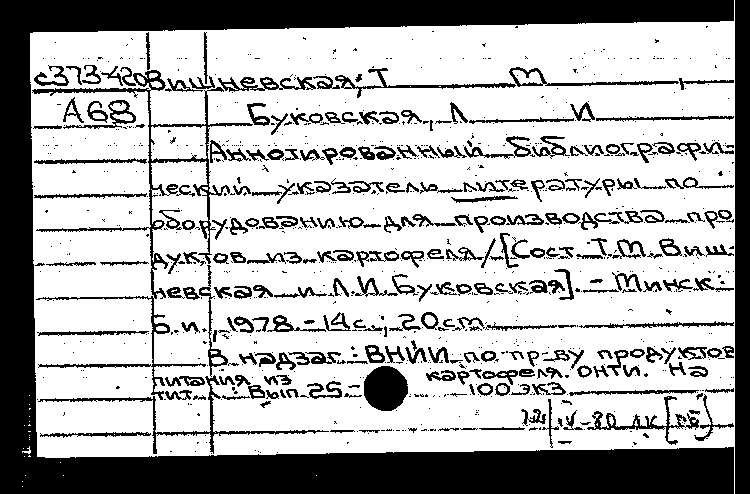 с373-420 Вишневская, Т М
А68 Буковская, Л И
Аннотированный библиографи-
ческий указатель литературы по
оборудованию для производства про
дуктов из картофеля/[Сост. Т.М. Виш-
невская и Л.И. Буковская]. - Минск:
Б.и., 1978. - 14с.; 20cm.
В надзаг.: ВНИИ по пр-ву продуктов
питания из картофеля. ОНТИ. На
тит. л.: Вып. 25. - 100 экз.
IV-80 ЛК [ПБ]